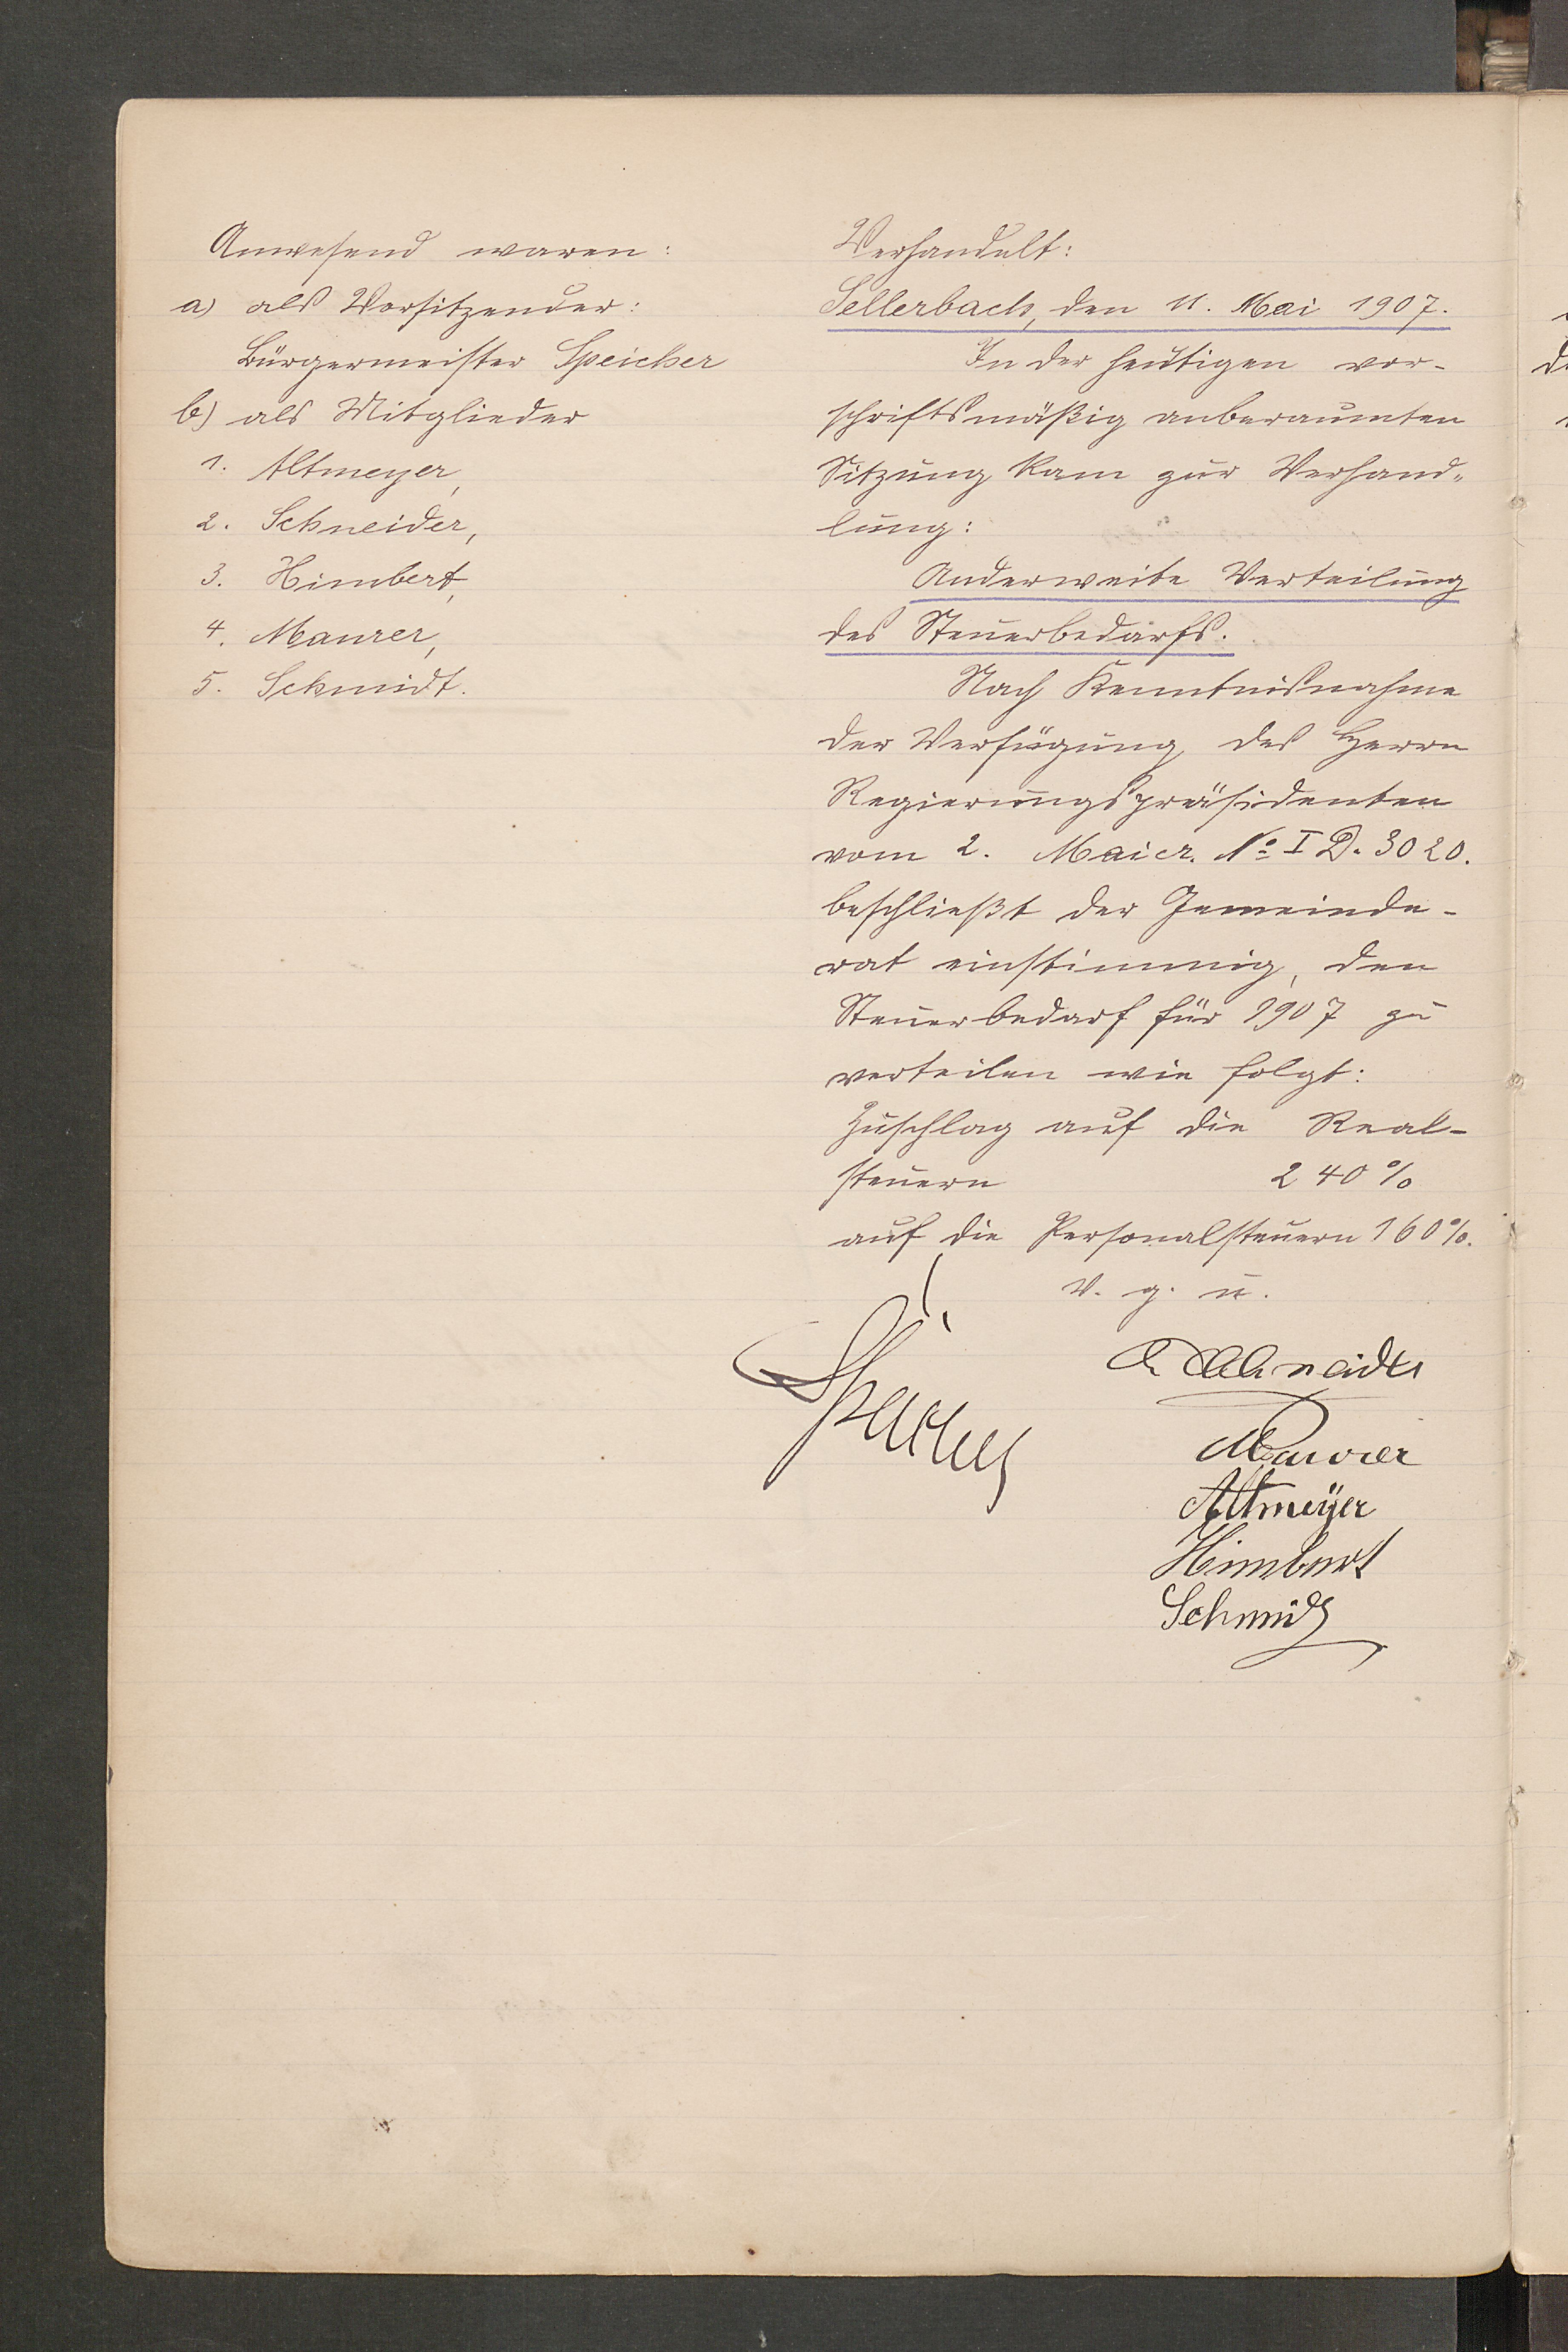 Anwesend waren:
a) als Vorsitzender:
Bürgermeister Speicher
b) als Mitglieder
1. Altmeyer,
2. Schneider,
3. Himbert,
4. Maurer,
5. Schmidt.
Verhandelt:
Sellerbach, den 11. Mai 1907.
In der heutigen vor-
schriftsmäßig anberaumten
Sitzung kam zur Verhand-
lung:
Anderweite Verteilung
des Steuerbedarfs.
Nach Kenntnißnahme
der Verfügung des Herrn
Regierungspräsidenten
vom 2. Mai cr. No I D. 3020.
beschließt der Gemeinde-
rat einstimmig, den
Steuerbedarf für 1907 zu
verteilen wie folgt:
Zuschlag auf die Real-
steuern 240 %
auf die Personalsteuern 160 %.
V. g. u.
Speicher
Schneider
Maurer
Altmeÿer
Himbert
Schmidt